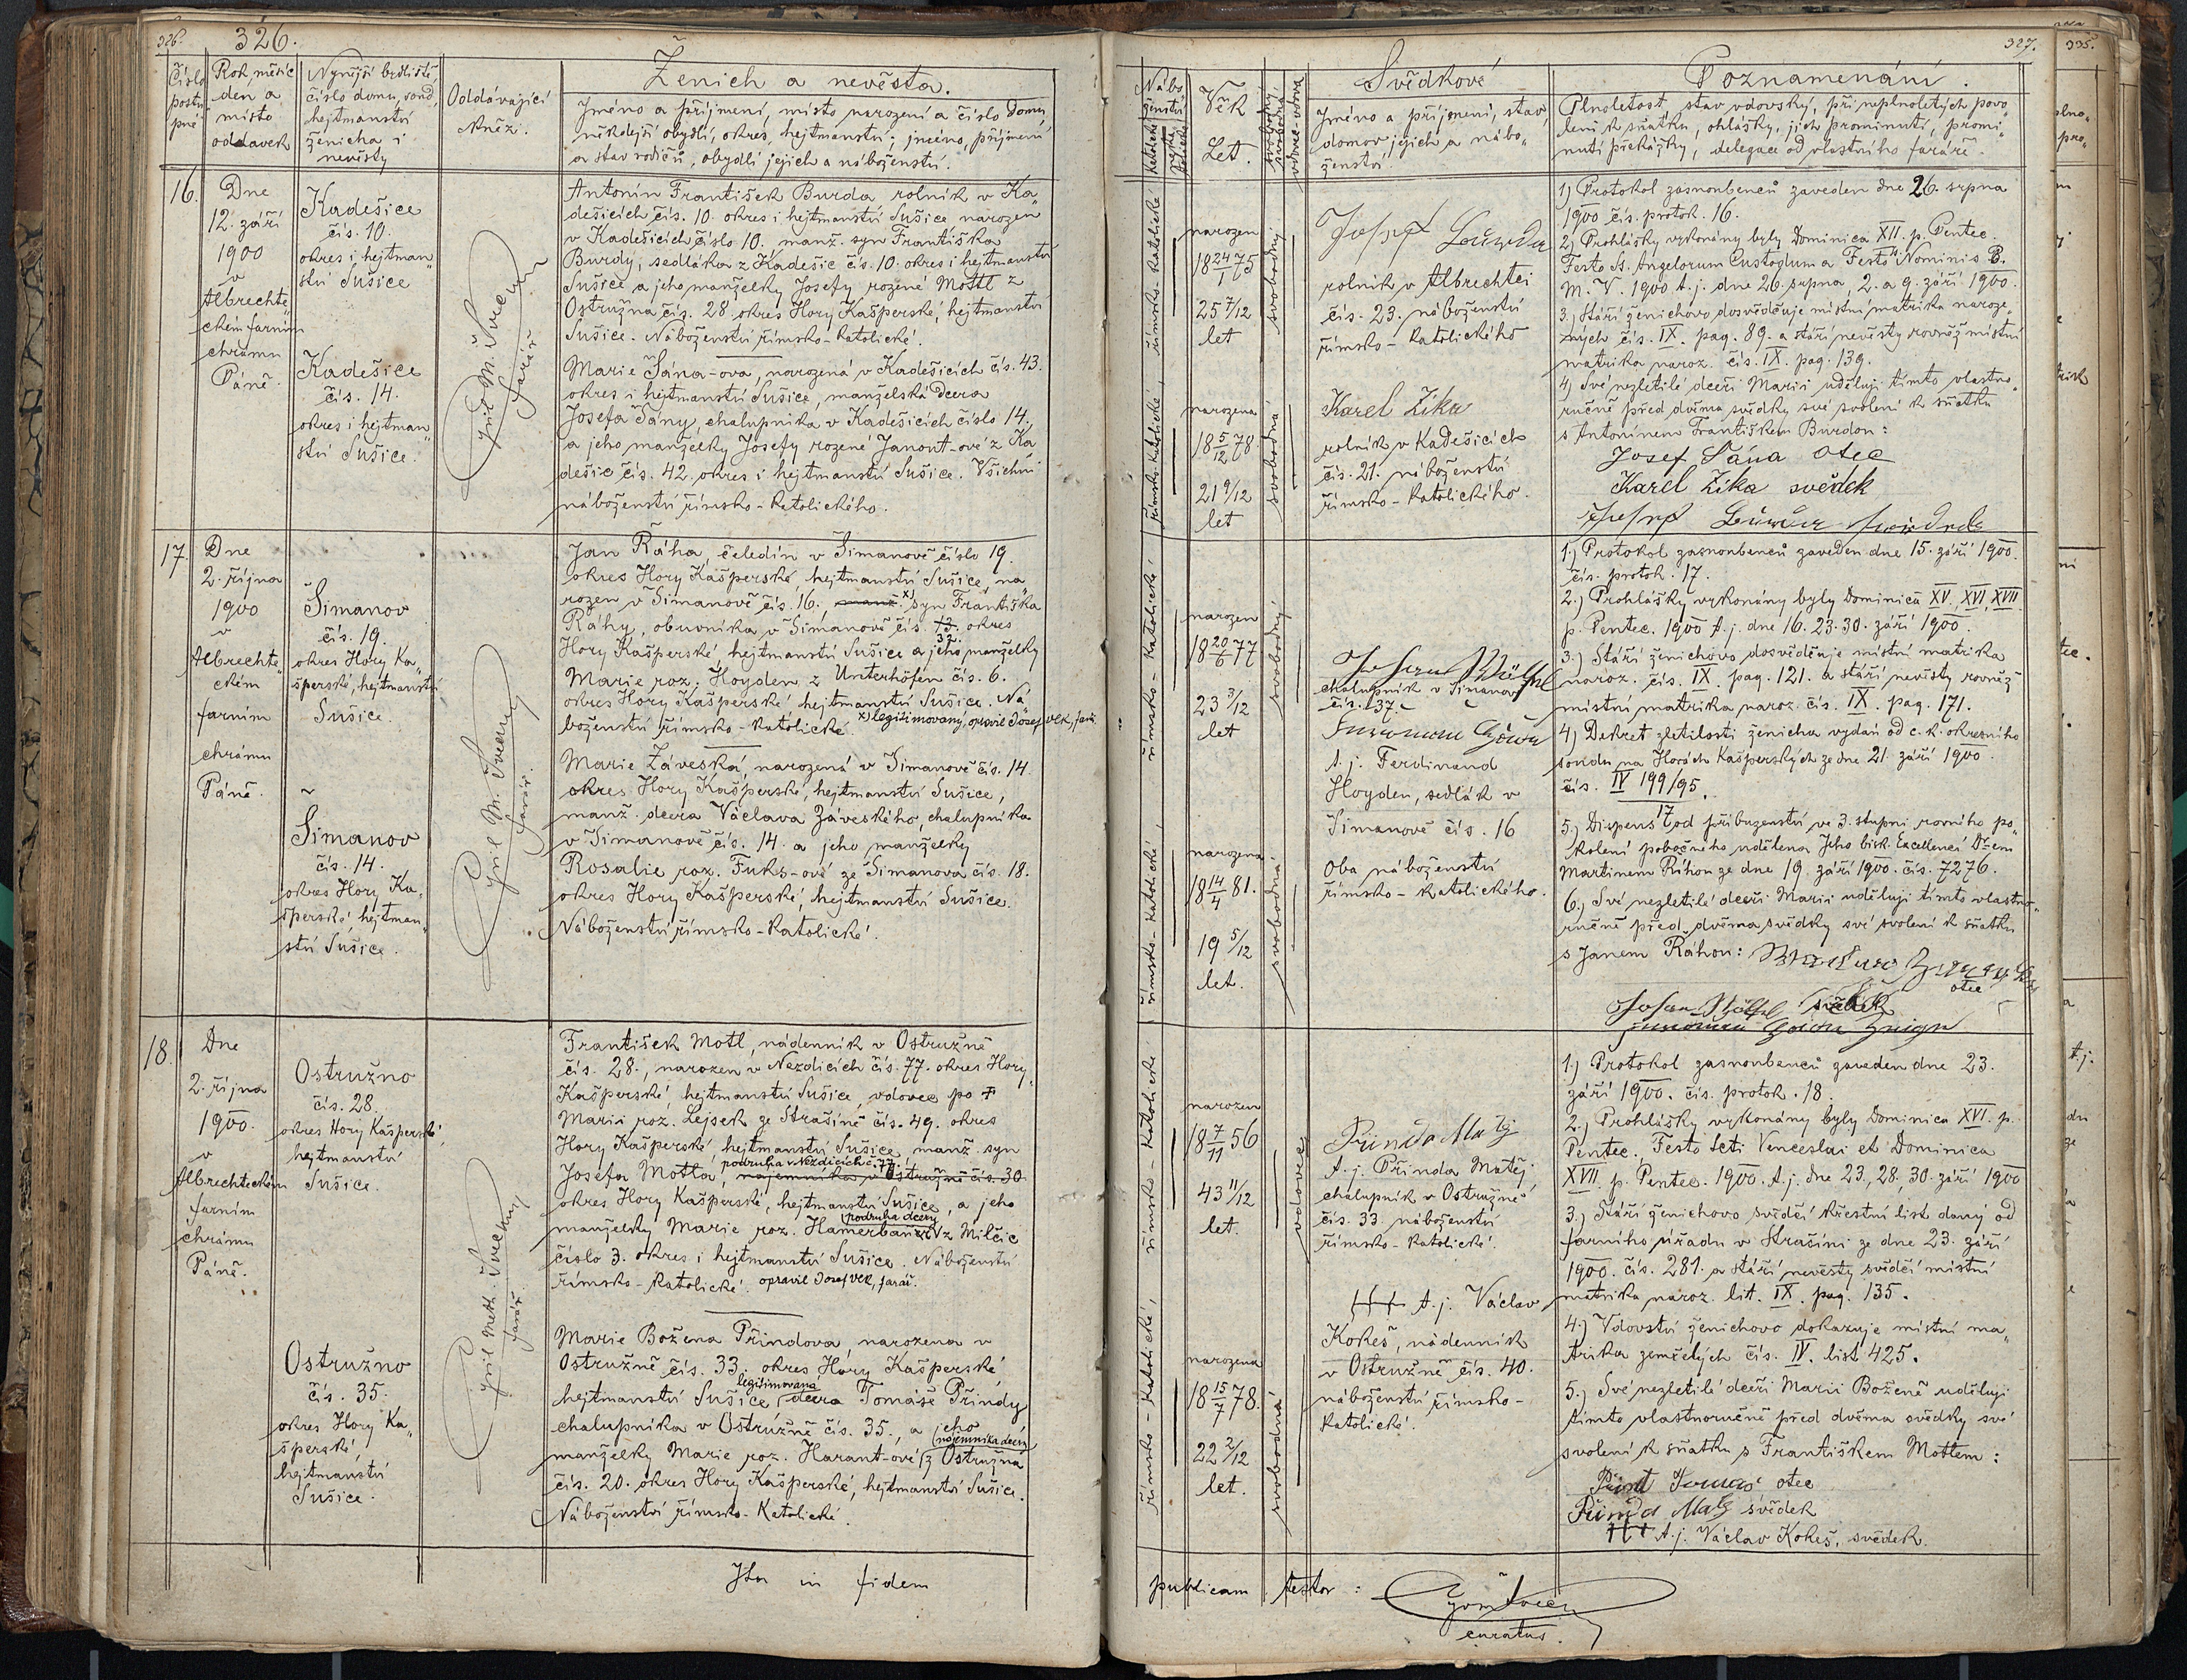 326.
326.
Číslo
postu
pné
Rok, měsíc
den a
místo
oddavek
Nynější bydliště,
číslo domu, soud,
hejtmanství
ženicha i
nevěsty
Oddávající
kněz.
Ženich a nevěsta.
Jméno a příjmení, místo narození a číslo domu,
někdejší obydlí, okres, hejtmanství; jméno, příjmení
a stav rodičů, obydlí jejich a náboženství.
16.
Dne
12. září
1900
v
Albrechte„
ckém farním
chrámu
Páně.
Kadešice
čís. 10.
okres i hejtman„
ství Sušice
Kadešice
čís. 14.
okres i hejtman„
ství Sušice.
Cyril M. Svěcený
farář.
Antonín František Burda rolník v Ka„
dešicích čís. 10. okres i hejtmanství Sušice narozen
v Kadešicích číslo 10. manž. syn Františka
Burdy, sedláka z Kadešic čís. 10. okres i hejtmanství
Sušice a jeho manželky Josefy rozené Mottl z
Ostružna čís. 28. okres Hory Kašperské, hejtmanství
Sušice. Náboženství římsko-katolické.
Marie Šána-ova, narozená v Kadešicích čís. 43.
okres i hejtmanství Sušice, manželská dcera
Josefa Šány, chalupníka v Kadešicích číslo 14.
a jeho manželky Josefy rozené Janout-ové z Ka
dešic čís. 42. okres i hejtmanství Sušice. Všichni
náboženství římsko-katolického.
17.
Dne
2. října
1900
v
Albrechte„
ckém
farním
chrámu
Páně.
Šimanov
čís. 19.
okres Hory Ka„
šperské, hejtmanství
Sušice.
Šimanov
čís. 14.
okres Hory Ka„
šperské hejtman„
ství Sušice.
Cyril M. Svěcený
farář.
Jan Ráha, čeledín v Šimanově číslo 19.
okres Hory Kašperské, hejtmanství Sušice, na„
rozen v Šimanově čís. 16., manž. x) syn Františka
Ráhy, obuvníka v Šimanově čís. 13. okres
32.
Hory Kašperské hejtmanství Sušice a jeho manželky
Marie roz. Hoyden z Unterhöfen čís. 6.
okres Hory Kašperské hejtmanství Sušice. Ná„
boženství římsko-katolické. x) legitimovaný, opravil Josef Vlk, far.
Marie Záveská, narozená v Šimanově čís. 14
okres Hory Kašperské, hejtmanství Sušice,
manž. dcera Václava Záveského, chalupníka
v Šimanově čís. 14. a jeho manželky
Rosalie roz. Fuks-ové ze Šimanova čís. 18.
okres Hory Kašperské, hejtmanství Sušice.
Náboženství římsko-katolické.
18.
Dne
2. října
1900.
v
Albrechteckém
farním
chrámu
Páně.
Ostružno
čís. 28.
okres Hory Kašperské,
hejtmanství
Sušice.
Ostružno
čís. 35.
okres Hory Ka„
šperské,
hejtmanství
Sušice.
Cyril Meth. Svěcený
farář.
František Motl, nádenník v Ostružně
čís. 28., narozen v Nezdicích čís. 77. okres Hory
Kašperské, hejtmanství Sušice, vdovec po †
Marii roz. Lejsek ze Strašíně čís. 49. okres
Hory Kašperské, hejtmanství Sušice, manž. syn
podruha v Nezdicích č. 77.
Josefa Mottla, nájemníka v Ostružně čís. 30
okres Hory Kašperské, hejtmanství Sušice, a jeho
podruha dcery
manželky Marie roz. Hamerbauer z Milčic
číslo 3. okres i hejtmanství Sušice. Náboženství
římsko-katolické. opravil Josef Vlk, farář.
Marie Božena Přindova, narozena v
Ostružně čís. 33. okres Hory Kašperské
legitimovana
hejtmanství Sušice, dcera Tomáše Přindy
chalupníka v Ostružně čís. 35., a jeho
nájemníka dcery
manželky Marie roz. Harant-ové z Ostružna
čís. 20. okres Hory Kašperské, hejtmanství Sušice.
Náboženství římsko-katolické.
Ita in fidem
327.
335.
Nábo„
ženství
Katolické
Věk
Let.
svobodný
vdovec-vdova
Svědkové
Jméno a příjmení, stav,
domov jejich a nábo„
ženství
Poznamenání.
Plnoletost, stav vdovský, při neplnoletých povo„
lení k sňatku, ohlášky, jich prominutí, promi„
nutí překážky, delegace od vlastního faráře.
římsko-katolické
narozen
18 24/1 75
25 7/12
let
svobodný
římsko-katolické,
narozena
18 5/12 78
21 9/12
let
svobodná
Josef Burda
rolník v Albrechtei
čís. 23. náboženství
římsko-katolického
Karel Zíka
rolník v Kadešicích
čís. 21. náboženství
římsko-katolického.
1) Protokol zasnoubenců zaveden dne 26. srpna
1900 čís. protok. 16.
2) Prohlášky vykonány byly Dominica XII. p. Pentec.
Festo Ss. Angelorum Custodum a Festo Nominis B.
M. V. 1900. t. j. dne 26. srpna, 2. a 9. září 1900.
3.) Stáří ženichovo dosvědčuje místní matrika naroze„
ných čís. IX. pag. 89. a stáří nevěsty rovněž místní
matrika naroz. čís. IX. pag. 139.
4) Své nezletilé dceři Marii uděluji tímto vlastno„
ručně před dvěma svědky své svolení k sňatku
s Antonínem Františkem Burdou:
Josef Šána otec
Karel Zíka svědek
Josef Burda svědek
římsko-katolické,
narozen
18 20/6 77
23 3/12
let
svobodný
římsko-katolické,
narozena
18 14/4 81.
19 5/12
let.
svobodná
chalupník v Šimanově
čís. 37.
t. j. Ferdinand
Hoyden, sedlák v
Šimanově čís. 16
Oba náboženství
římsko-katolického.
1.) Protokol zasnoubenců zaveden dne 15. září 1900.
čís. protok. 17.
2.) Prohlášky vykonány byly Dominica XV., XVI, XVII
p. Pentec. 1900 t. j. dne 16. 23. 30. září 1900.
3.) Stáří ženichovo dosvědčuje místní matrika
naroz. čís. IX. pag. 121. a stáří nevěsty rovněž
místní matrika naroz. čís. IX. pag. 171.
4) Dekret zletilosti ženicha vydán od c. k. okresního
soudu na Horách Kašperských ze dne 21. září 1900.
čís. IV 199/95.
17
5.) Dispens od příbuzenství ve 3. stupni rovného po„
kolení pobočného udělena Jeho bisk. Excellencí Dřem
Martinem Říhou ze dne 19. září 1900. čís. 7276.
6.) Své nezletilé dceři Marii uděluji tímto vlastno„
ručně před dvěma svědky své svolení k sňatku
s Janem Ráhou:
otec
svědek
římsko-katolické
narozen
18 7/11 56
43 11/12
let.
vdovec
římsko-katolické,
narozena
18 15/7 78.
22 2/12
let.
svobodná
Přinda Matěj
t. j. Přinda Matěj,
chalupník v Ostružně
čís. 33. náboženství
římsko-katolické.
††† t. j. Václav
Kokeš, nádenník
v Ostružně čís. 40.
náboženství římsko-
katolické.
1.) Protokol zasnoubenců zaveden dne 23.
září 1900. čís. protok. 18.
2.) Prohlášky vykonány byly Dominica XVI. p.
Pentec., Festo Scti Venceslai et Dominica
XVII. p. Pentec. 1900. t. j. dne 23., 28, 30. září 1900
3.) Stáří ženichovo svědčí křestní list daný od
farního úřadu v Strašíni ze dne 23. září
1900. čís. 281. a stáří nevěsty svědčí místní
matrika naroz. lit. IX. pag. 135.
4.) Vdovství ženichovo dokazuje místní ma„
trika zemřelých čís. IV. list 425.
5.) Své nezletilé dceři Marii Boženě uděluji
tímto vlastnoručně před dvěma svědky své
svolení k sňatku s Františkem Mottem:
Tomáš otec
Přinda Matěj svědek
††† t. j. Václav Kokeš, svědek.
publicam testor:
curatus.